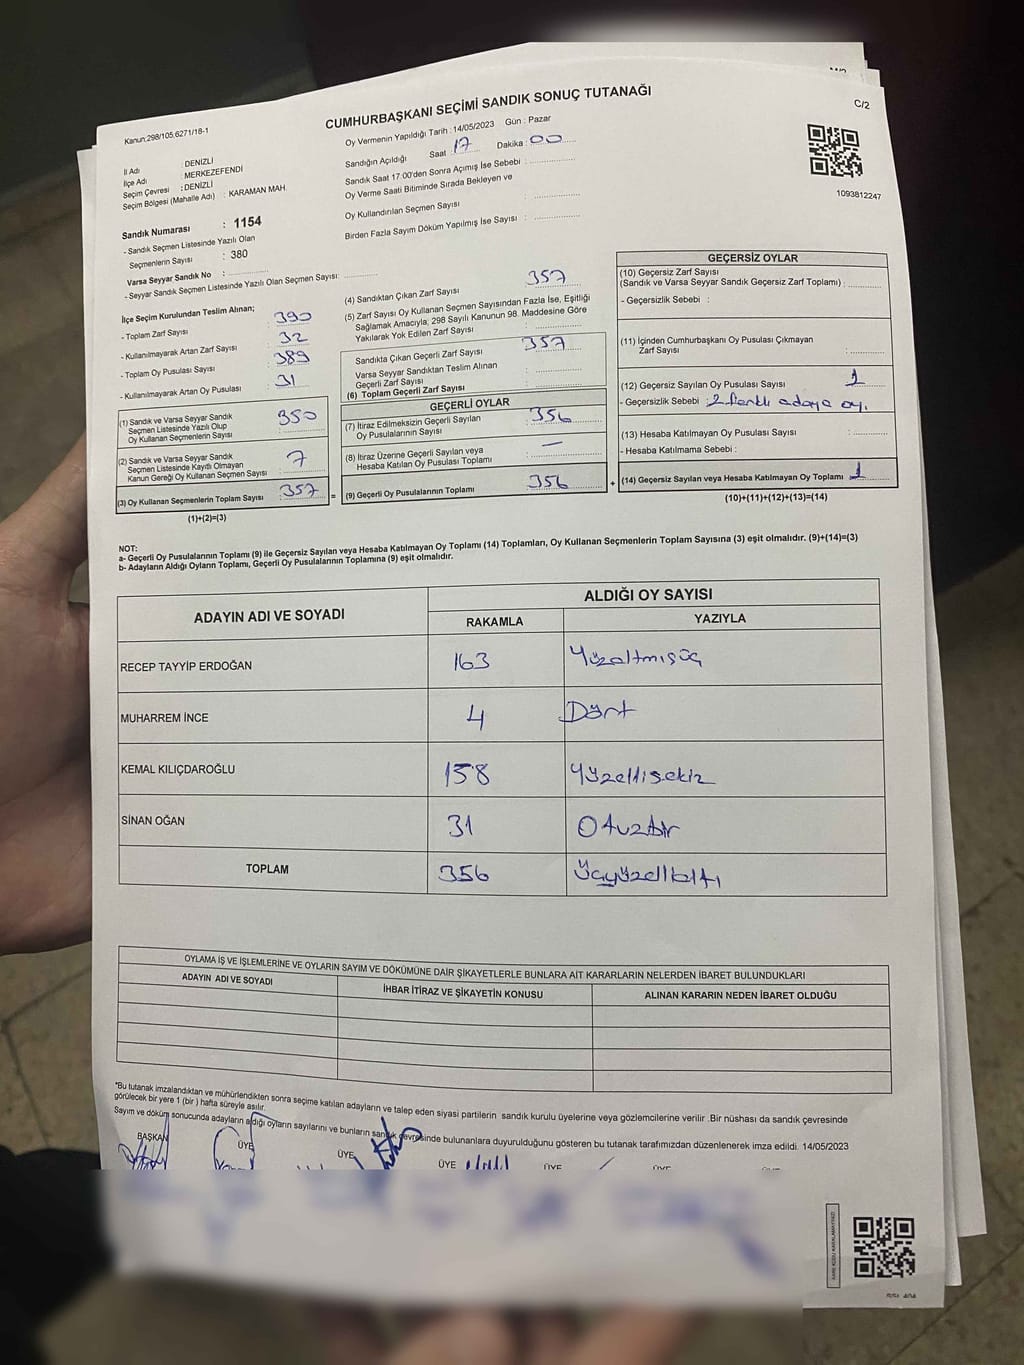 CUMHURBAŞKANI SEÇİMİ SANDIK SONUÇ TUTANAĞI
C/2
Kanun:298/105,6271/18-1
Oy Vermenin Yapıldığı Tarih : 14/05/2023 Gün : Pazar
1093812247
İl Adı : DENİZLİ
İlçe Adı : MERKEZEFENDİ
Seçim Çevresi : DENİZLİ
Seçim Bölgesi (Mahalle Adı) : KARAMAN MAH
Sandığın Açıldığı Saat : 17 Dakika : 00
Sandık Saat 17:00'den Sonra Açımış İse Sebebi :
Oy Verme Saati Bitiminde Sırada Bekleyen ve
Oy Kullandırılan Seçmen Sayısı :
Birden Fazla Sayım Döküm Yapılmış İse Sayısı :
Sandık Numarası : 1154
- Sandık Seçmen Listesinde Yazılı Olan
Seçmenlerin Sayısı : 380
Varsa Seyyar Sandık No :
- Seyyar Sandık Seçmen Listesinde Yazılı Olan Seçmen Sayısı:
İlçe Seçim Kurulundan Teslim Alınan;
- Toplam Zarf Sayısı : 390
- Kullanılmayarak Artan Zarf Sayısı : 32
- Toplam Oy Pusulası Sayısı : 389
- Kullanılmayarak Artan Oy Pusulası : 31
(1) Sandık ve Varsa Seyyar Sandık
Seçmen Listesinde Yazılı Olup
Oy Kullanan Seçmenlerin Sayısı : 350
(2) Sandık ve Varsa Seyyar Sandık
Seçmen Listesinde Kayıtlı Olmayan
Kanun Gereği Oy Kullanan Seçmen Sayısı : 7
(3) Oy Kullanan Seçmenlerin Toplam Sayısı : 357 =
(1)+(2)=(3)
(4) Sandıktan Çıkan Zarf Sayısı : 357
(5) Zarf Sayısı Oy Kullanan Seçmen Sayısından Fazla İse, Eşitliği
Sağlamak Amacıyla, 298 Sayılı Kanunun 98. Maddesine Göre
Yakılarak Yok Edilen Zarf Sayısı :
Sandıkta Çıkan Geçerli Zarf Sayısı : 357
Varsa Seyyar Sandıktan Teslim Alınan
Geçerli Zarf Sayısı :
(6) Toplam Geçerli Zarf Sayısı :
GEÇERLİ OYLAR
(7) İtiraz Edilmeksizin Geçerli Sayılan
Oy Pusulalarının Sayısı : 356
(8) İtiraz Üzerine Geçerli Sayılan veya
Hesaba Katılan Oy Pusulası Toplamı : —
(9) Geçerli Oy Pusulalarının Toplamı : 356 +
GEÇERSİZ OYLAR
(10) Geçersiz Zarf Sayısı
(Sandık ve Varsa Seyyar Sandık Geçersiz Zarf Toplamı) :
- Geçersizlik Sebebi :
(11) İçinden Cumhurbaşkanı Oy Pusulası Çıkmayan
Zarf Sayısı :
(12) Geçersiz Sayılan Oy Pusulası Sayısı : 1
- Geçersizlik Sebebi : 2 farklı adaya oy.
(13) Hesaba Katılmayan Oy Pusulası Sayısı :
- Hesaba Katılmama Sebebi :
(14) Geçersiz Sayılan veya Hesaba Katılmayan Oy Toplamı : 1
(10)+(11)+(12)+(13)=(14)
NOT:
a- Geçerli Oy Pusulalarının Toplamı (9) ile Geçersiz Sayılan veya Hesaba Katılmayan Oy Toplamı (14) Toplamları, Oy Kullanan Seçmenlerin Toplam Sayısına (3) eşit olmalıdır. (9)+(14)=(3)
b- Adayların Aldığı Oyların Toplamı, Geçerli Oy Pusulalarının Toplamına (9) eşit olmalıdır.
ADAYIN ADI VE SOYADI ALDIĞI OY SAYISI
RAKAMLA YAZIYLA
RECEP TAYYİP ERDOĞAN 163 Yüzaltmışüç
MUHARREM İNCE 4 Dört
KEMAL KILIÇDAROĞLU 158 Yüzellisekiz
SİNAN OĞAN 31 Otuzbir
TOPLAM 356 Üçyüzellialtı
OYLAMA İŞ VE İŞLEMLERİNE VE OYLARIN SAYIM VE DÖKÜMÜNE DAİR ŞİKAYETLERLE BUNLARA AİT KARARLARIN NELERDEN İBARET BULUNDUKLARI
ADAYIN ADI VE SOYADI İHBAR İTİRAZ VE ŞİKAYETİN KONUSU ALINAN KARARIN NEDEN İBARET OLDUĞU
*Bu tutanak imzalandıktan ve mühürlendikten sonra seçime katılan adayların ve talep eden siyasi partilerin sandık kurulu üyelerine veya gözlemcilerine verilir .Bir nüshası da sandık çevresinde
görülecek bir yere 1 (bir ) hafta süreyle asılır.
Sayım ve döküm sonucunda adayların aldığı oyların sayılarını ve bunların sandık çevresinde bulunanlara duyurulduğunu gösteren bu tutanak tarafımızdan düzenlenerek imza edildi. 14/05/2023
BAŞKAN ÜYE ÜYE ÜYE ÜYE